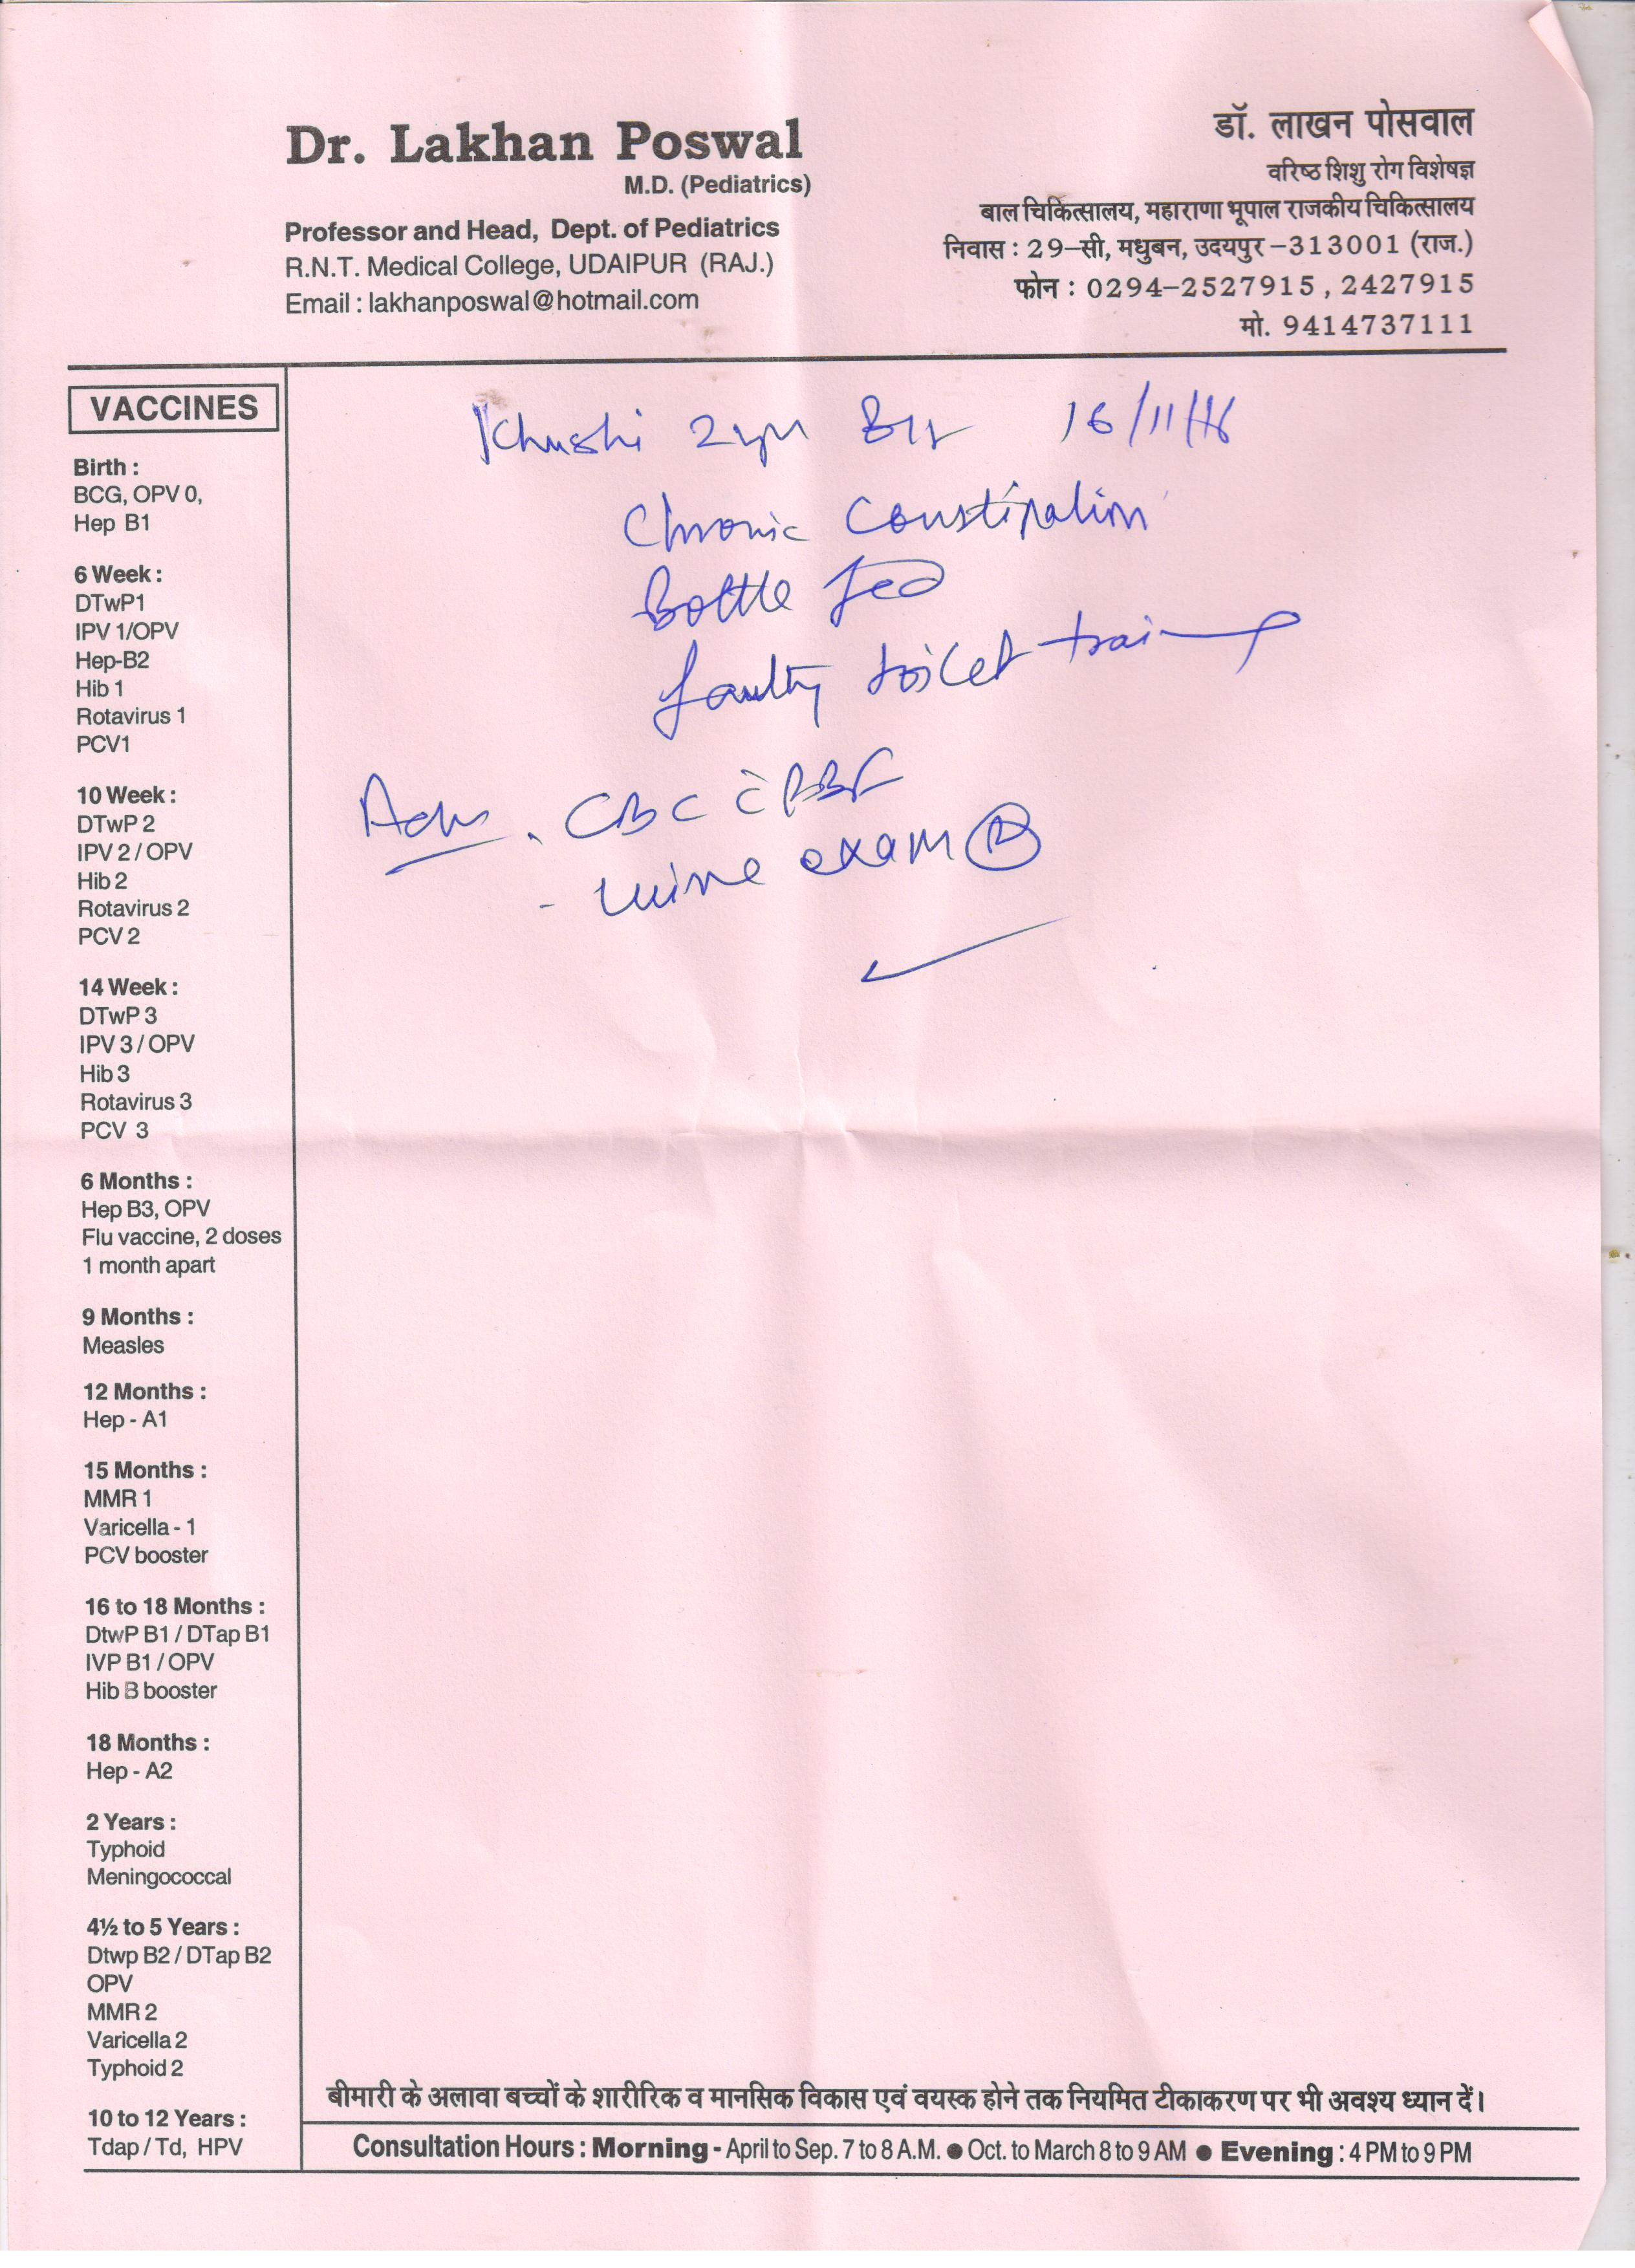 Dr. Lakhan Poswal
M.D. (Pediatrics)
Professor and Head, Dept. of Pediatrics
R.N.T. Medical College, UDAIPUR (RAJ.)
Email : lakhanposwal@hotmail.com
डॉ. लाखन पोसवाल
वरिष्ठ शिशु रोग विशेषज्ञ
बाल चिकित्सालय, महाराणा भूपाल राजकीय चिकित्सालय
निवास : 29–सी, मधुबन, उदयपुर –313001 (राज.)
फोन : 0294–2527915 , 2427915
मो. 9414737111
VACCINES
Birth :
BCG, OPV 0,
Hep B1
6 Week :
DTwP1
IPV 1/OPV
Hep-B2
Hib 1
Rotavirus 1
PCV1
10 Week :
DTwP 2
IPV 2 / OPV
Hib 2
Rotavirus 2
PCV 2
14 Week :
DTwP 3
IPV 3 / OPV
Hib 3
Rotavirus 3
PCV 3
6 Months :
Hep B3, OPV
Flu vaccine, 2 doses
1 month apart
9 Months :
Measles
12 Months :
Hep - A1
15 Months :
MMR 1
Varicella - 1
PCV booster
16 to 18 Months :
DtwP B1 / DTap B1
IVP B1 / OPV
Hib B booster
18 Months :
Hep - A2
2 Years :
Typhoid
Meningococcal
4½ to 5 Years :
Dtwp B2 / DTap B2
OPV
MMR 2
Varicella 2
Typhoid 2
10 to 12 Years :
Tdap / Td, HPV
Khushi 2yr 16/11/16
Chronic Constipation
Bottle fed
faulty toilet training
Adv. CBC c̄ PBF
- urine exam (R)
बीमारी के अलावा बच्चों के शारीरिक व मानसिक विकास एवं वयस्क होने तक नियमित टीकाकरण पर भी अवश्य ध्यान दें।
Consultation Hours : Morning - April to Sep. 7 to 8 A.M. ● Oct. to March 8 to 9 AM ● Evening : 4 PM to 9 PM